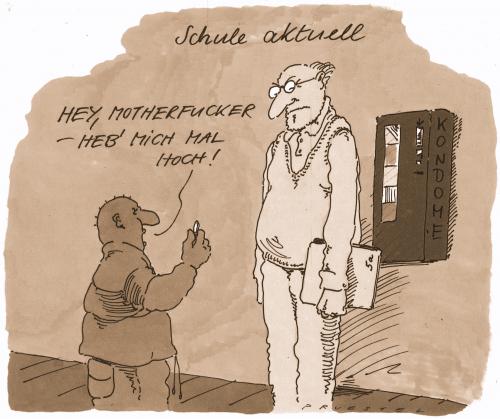 Schule aktuell
HEY, MOTHERFUCKER
– HEB' MICH MAL
HOCH!
KONDOME
5a